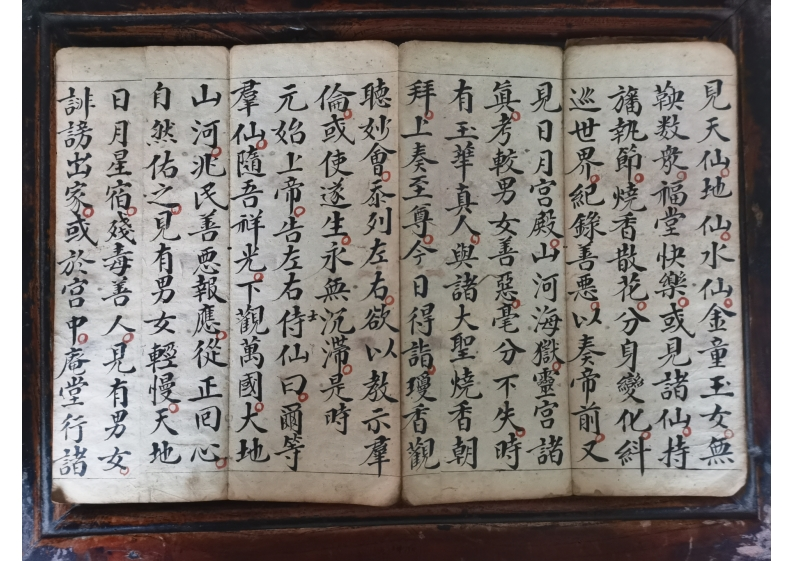 見天仙地仙水仙金童玉女無
鞅数衆福堂快樂或見諸仙持
旛執節燒香散花分身變化糾
巡世界紀錄善悪以奏帝前又
見日月宫殿山河海嶽靈宫諸
真考較男女善惡毫分不失時
有玉華真人與諸大聖燒香朝
拜上奏至尊今日得詣瓊香觀
聴妙會忝列左右欲以教示羣
倫或使遂生永無沉滯是時
元始上帝告左右侍仙曰爾等
士
羣仙隨吾祥光下觀萬國大地
山河兆民善悪報應從正回心
自然佑之見有男女輕慢天地
日月星宿殘毒善人見有男女
誹謗出家或於宫中庵堂行諸